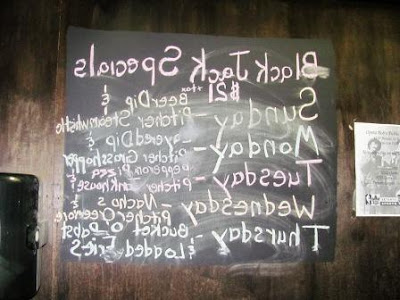 Black Jack Specials
$21 +tax
Sunday - Beer Dip &
Pitcher Steamwhistle
Monday - Layered Dip &
Pitcher Grasshopper
Tuesday - Pepperoni Pizza &
Pitcher Tankhouse
Wednesday - Nachos &
Pitcher Creemore
Thursday - Bucket O Pabst
& Loaded Fries